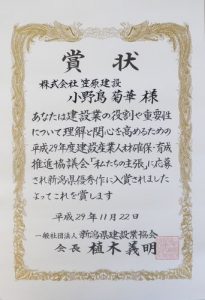 賞状
株式会社笠原建設
小野島菊華様
あなたは建設業の役割や重要性
について理解と関心を高めるための
平成29年度建設産業人材確保・育成
推進協議会「私たちの主張」に応募
され新潟県優秀作に入賞されました
よってこれを賞します
平成29年11月22日
一般社団法人新潟県建設業協会
会長植木義明